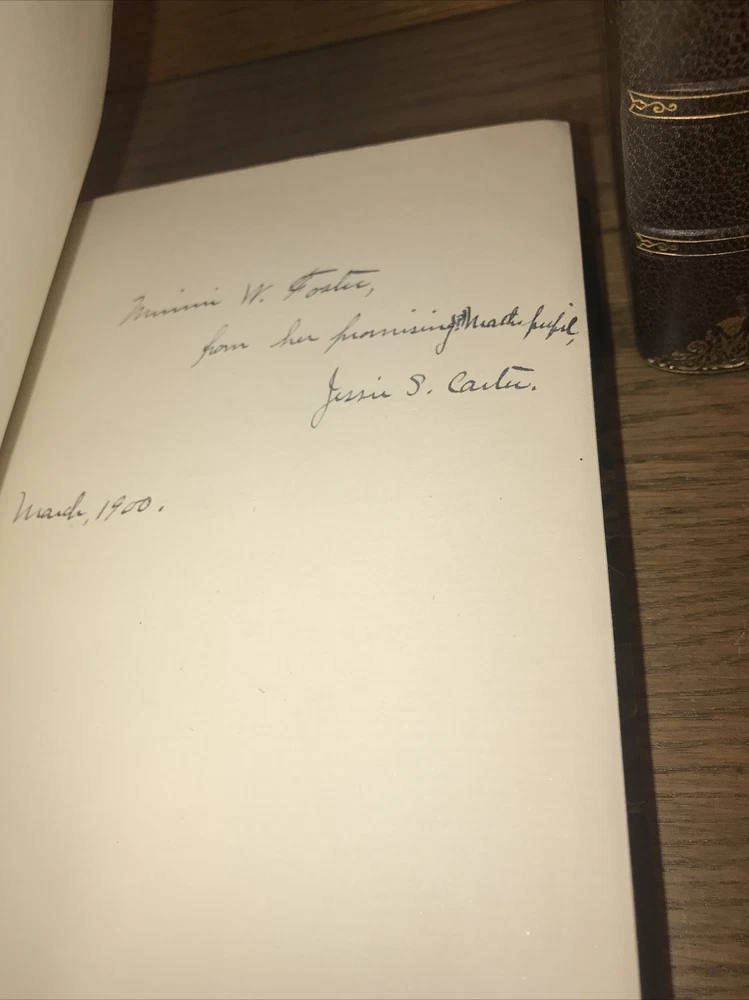 Minnie W. Foster,
from her promising Math pupil,
Jessie S. Carter.
March, 1900.